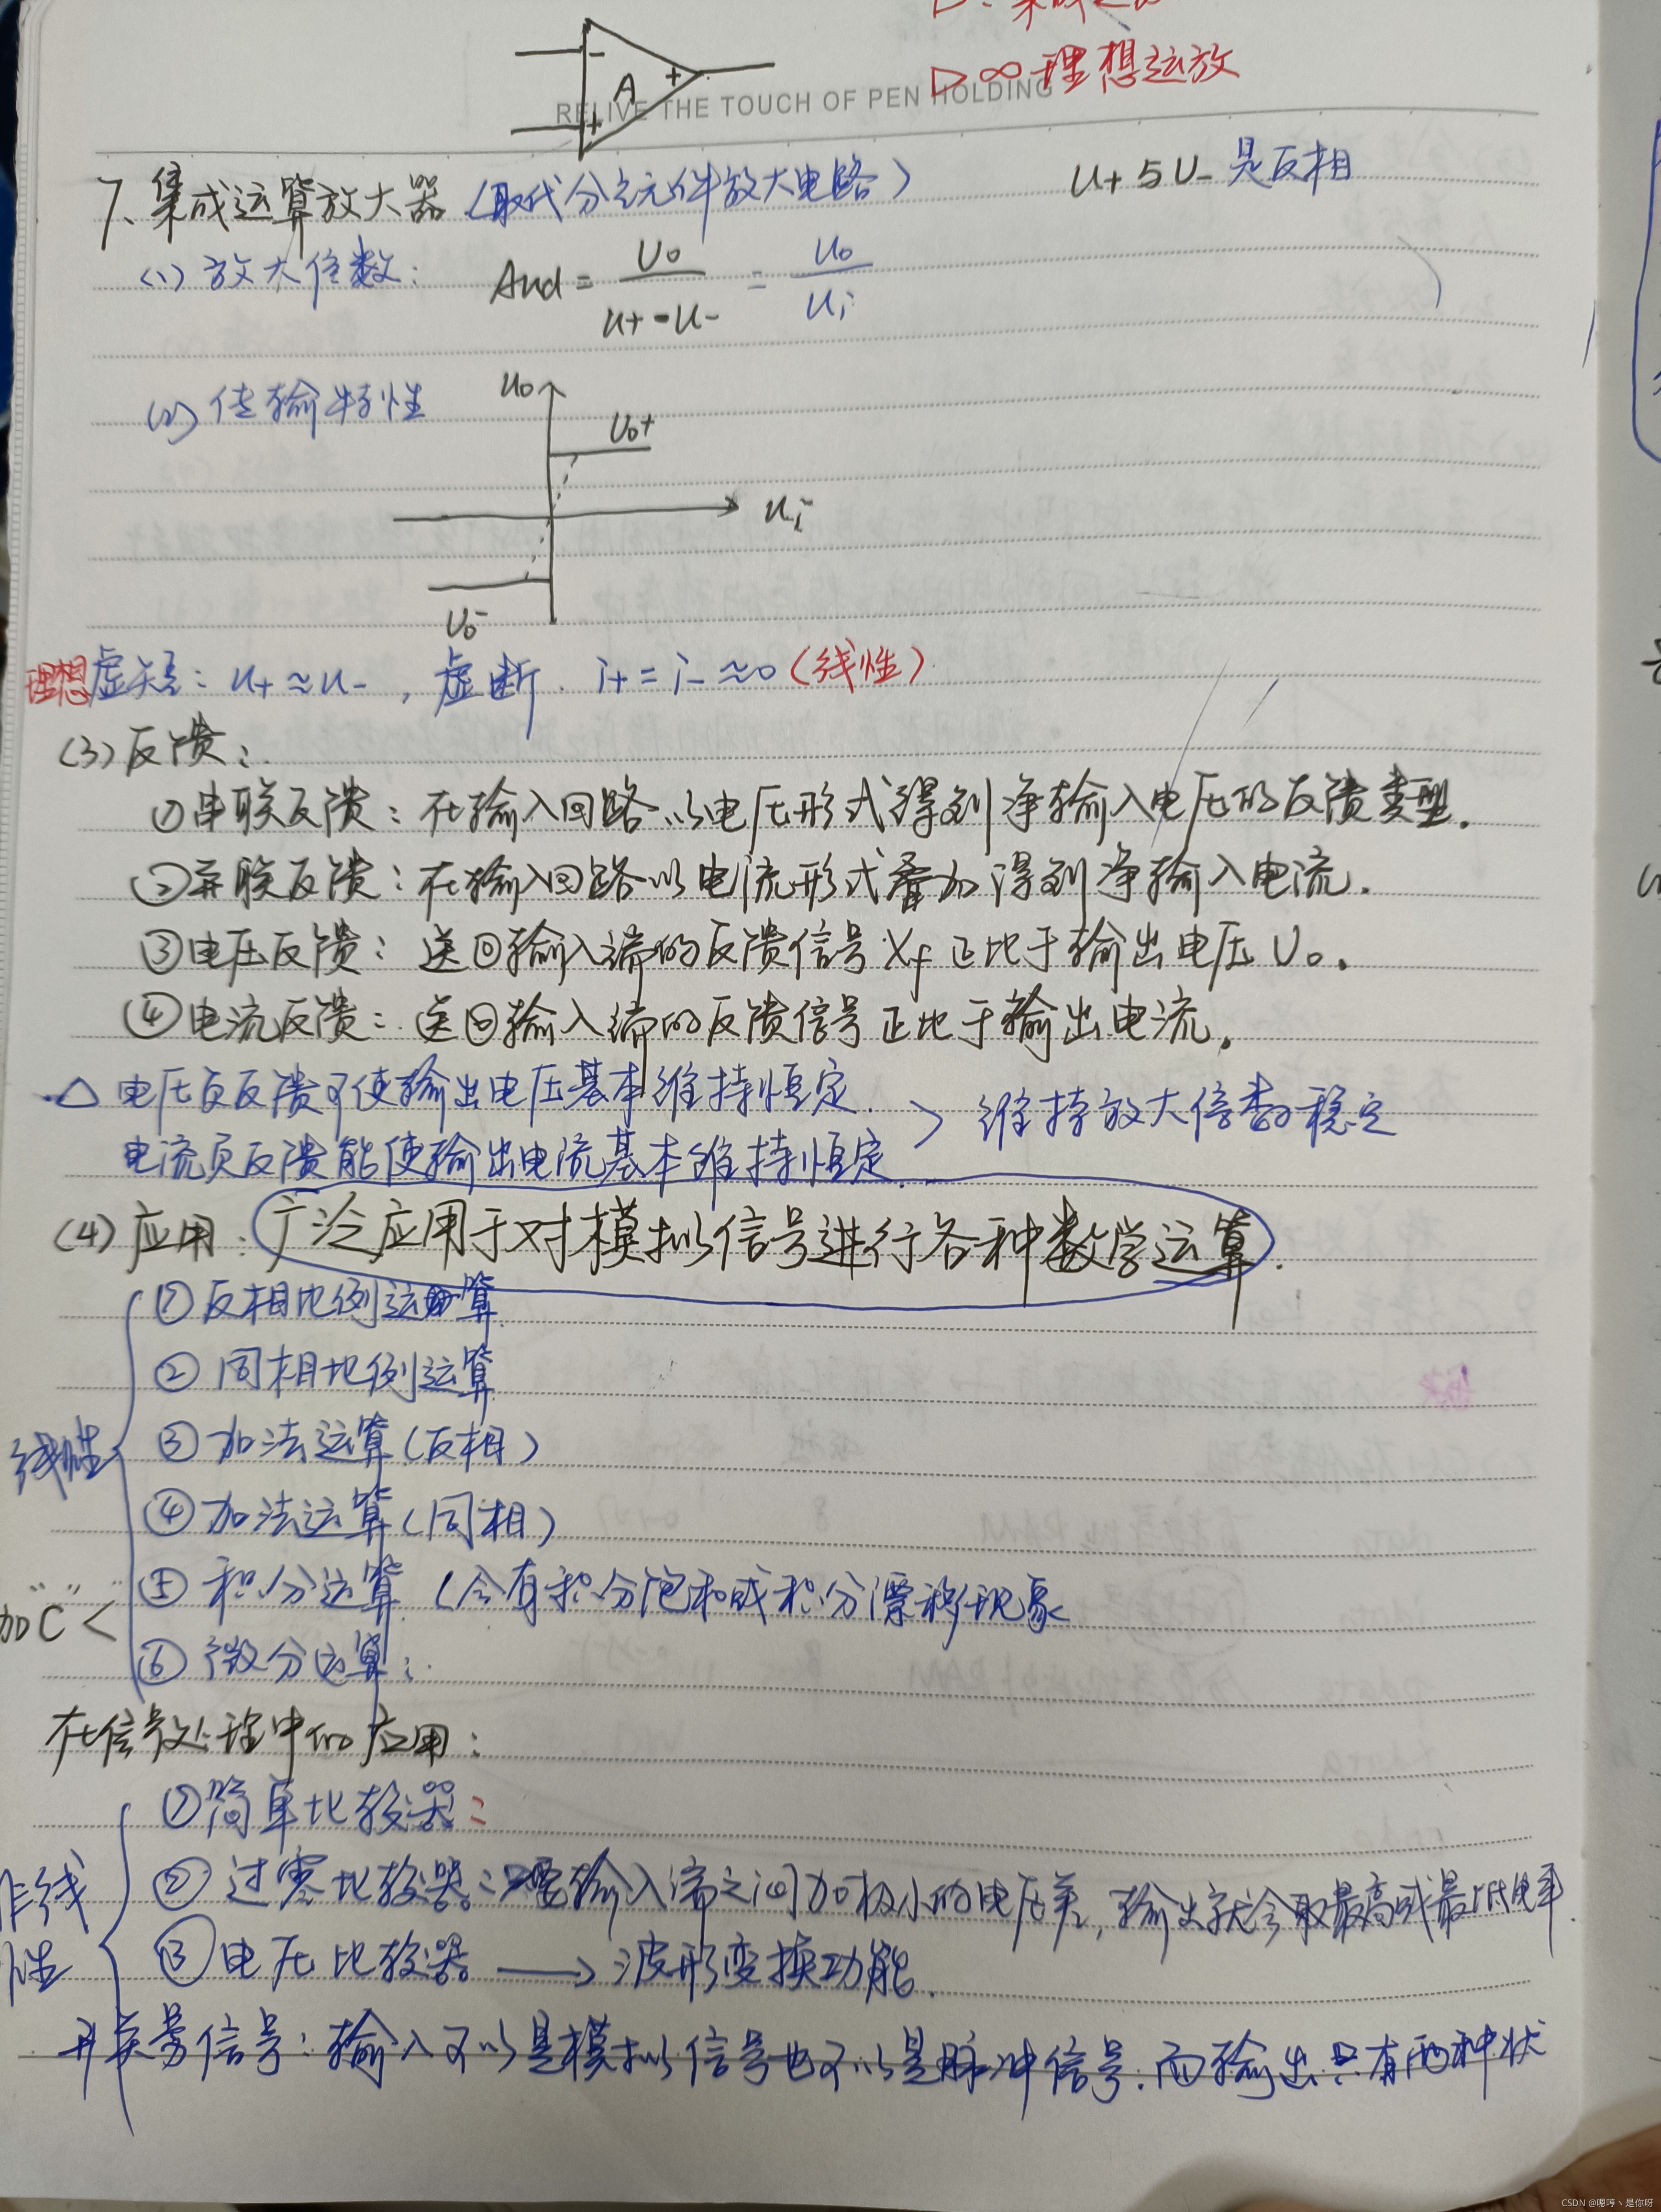 ▷∞ 理想运放
- A + +
RELIVE THE TOUCH OF PEN HOLDING
7、集成运算放大器（取代分立元件放大电路） U+与U-是反相
(1) 放大倍数： Aud = Uo / (u+ - u-) = Uo / Ui
(2) 传输特性
uo
Uo+
ui
Uo-
理想 虚短：u+≈u-，虚断. i+=i-≈0（线性）
(3) 反馈：
①串联反馈：在输入回路以电压形式得到净输入电压的反馈类型.
②并联反馈：在输入回路以电流形式叠加得到净输入电流.
③电压反馈：送回输入端的反馈信号Xf正比于输出电压Uo.
④电流反馈：送回输入端的反馈信号正比于输出电流.
△ 电压负反馈可使输出电压基本维持恒定. > 维持放大倍数稳定
电流负反馈能使输出电流基本维持恒定.
(4) 应用：广泛应用于对模拟信号进行各种数学运算.
①反相比例运算
②同相比例运算
线性 ③加法运算（反相）
④加法运算（同相）
⑤积分运算（会有积分饱和或积分漂移现象
加"C" <
⑥微分运算：
在信号处理中的应用：
①简单比较器：
②过零比较器：只要输入端之间加极小的电压差，输出就会取最高或最低电平.
非线性 ③电压比较器 → 波形变换功能.
开关量信号：输入可以是模拟信号也可以是脉冲信号.而输出只有两种状
CSDN @嗯哼丶是你呀